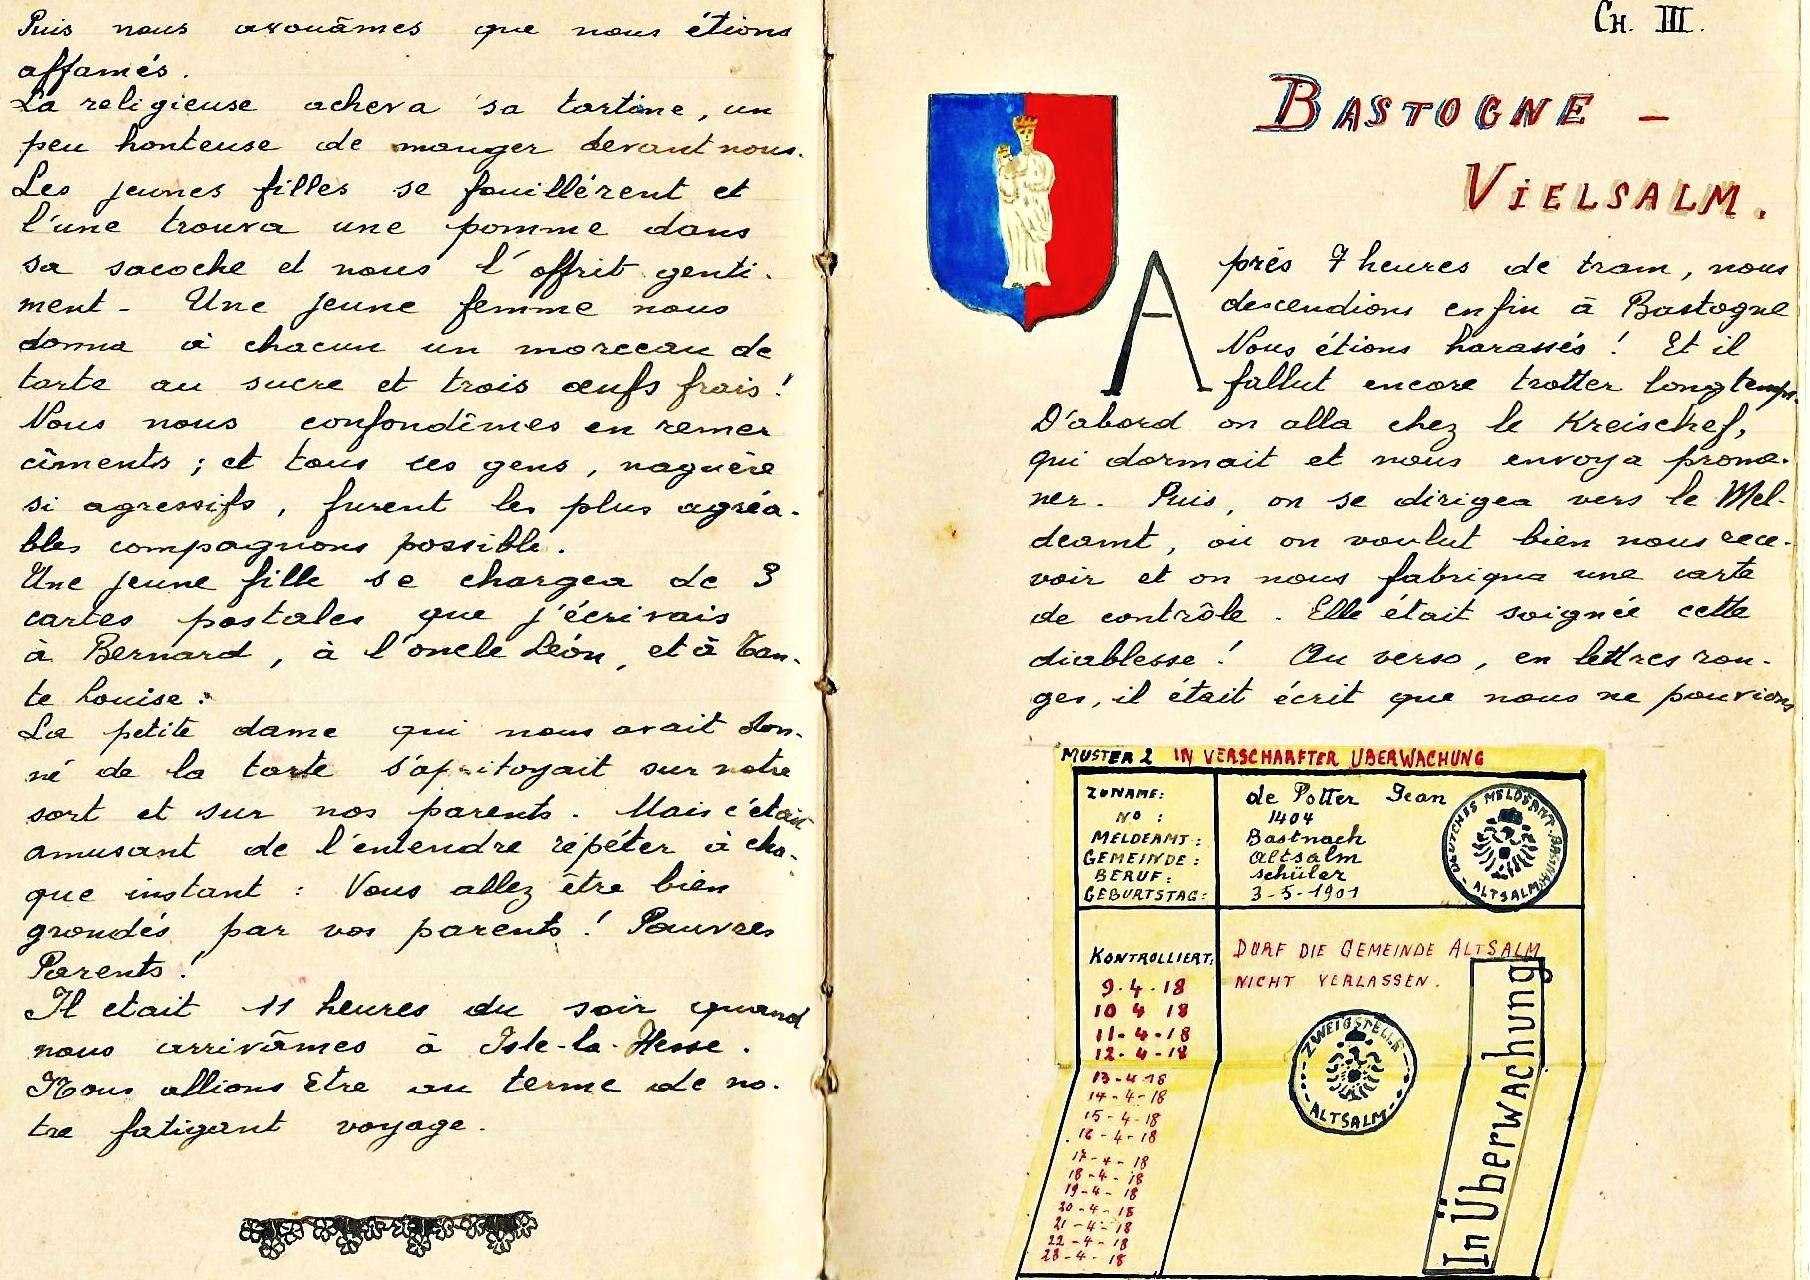 Puis nous avouâmes que nous étions
affamés.
La religieuse acheva sa tartine, un
peu honteuse de manger devant nous.
Les jeunes filles se fouillérent et
l'une trouva une pomme dans
sa sacoche et nous l'offrit genti-
ment - Une jeune femme nous
donna à chacun un morceau de
tarte au sucre et trois œufs frais!
Nous nous confondîmes en remer
cîments ; et tous ces gens, naguère
si agressifs, furent les plus agréa-
bles compagnons possible.
Une jeune fille se chargea de 3
cartes postales que j'écrivais
à Bernard, à l'oncle Léon, et à Tan-
te Louise :
La petite dame qui nous avait don-
né de la tarte s'apitoyait sur notre
sort et sur nos parents. Mais c'était
amusant de l'entendre répéter à cha-
que instant : Vous allez être bien
grondés par vos parents! Pauvres
Parents!
Il etait 11 heures du soir quand
nous arrivâmes à Isle-la-Hesse.
Nous allions être au terme de no-
tre fatigant voyage.
CH. III.
BASTOGNE -
VIELSALM.
Après 7 heures de tram, nous
descendions enfin à Bastogne
Nous étions harassés! Et il
fallut encore trotter longtemps.
D'abord on alla chez le Kreischef,
qui dormait et nous envoya prome-
ner. Puis, on se dirigea vers le Mel-
deamt, où on voulut bien nous rece-
voir et on nous fabriqua une carte
de contrôle. Elle était soignée cette
diablesse! Au verso, en lettres rou-
ges, il était écrit que nous ne pouvions
MUSTER 2 IN VERSCHARFTER UBERWACHUNG
ZUNAME: de Potter Jean
No : 1404
MELDEAMT: Bastnach
GEMEINDE: Altsalm
BERUF: schüler
GEBURTSTAG: 3-5-1901
DEUTCHES MELDEAMT-BASTNACH
ALTSALM
KONTROLLIERT:
9-4-18
10 4 18
11-4-18
12-4-18
13-4-18
14-4-18
15-4-18
16-4-18
17-4-18
18-4-18
19-4-18
20-4-18
21-4-18
22-4-18
23-4-18
DURF DIE GEMEINDE ALTSALM
NICHT VERLASSEN.
ZWEIGSTELLE
ALTSALM
In Überwachung